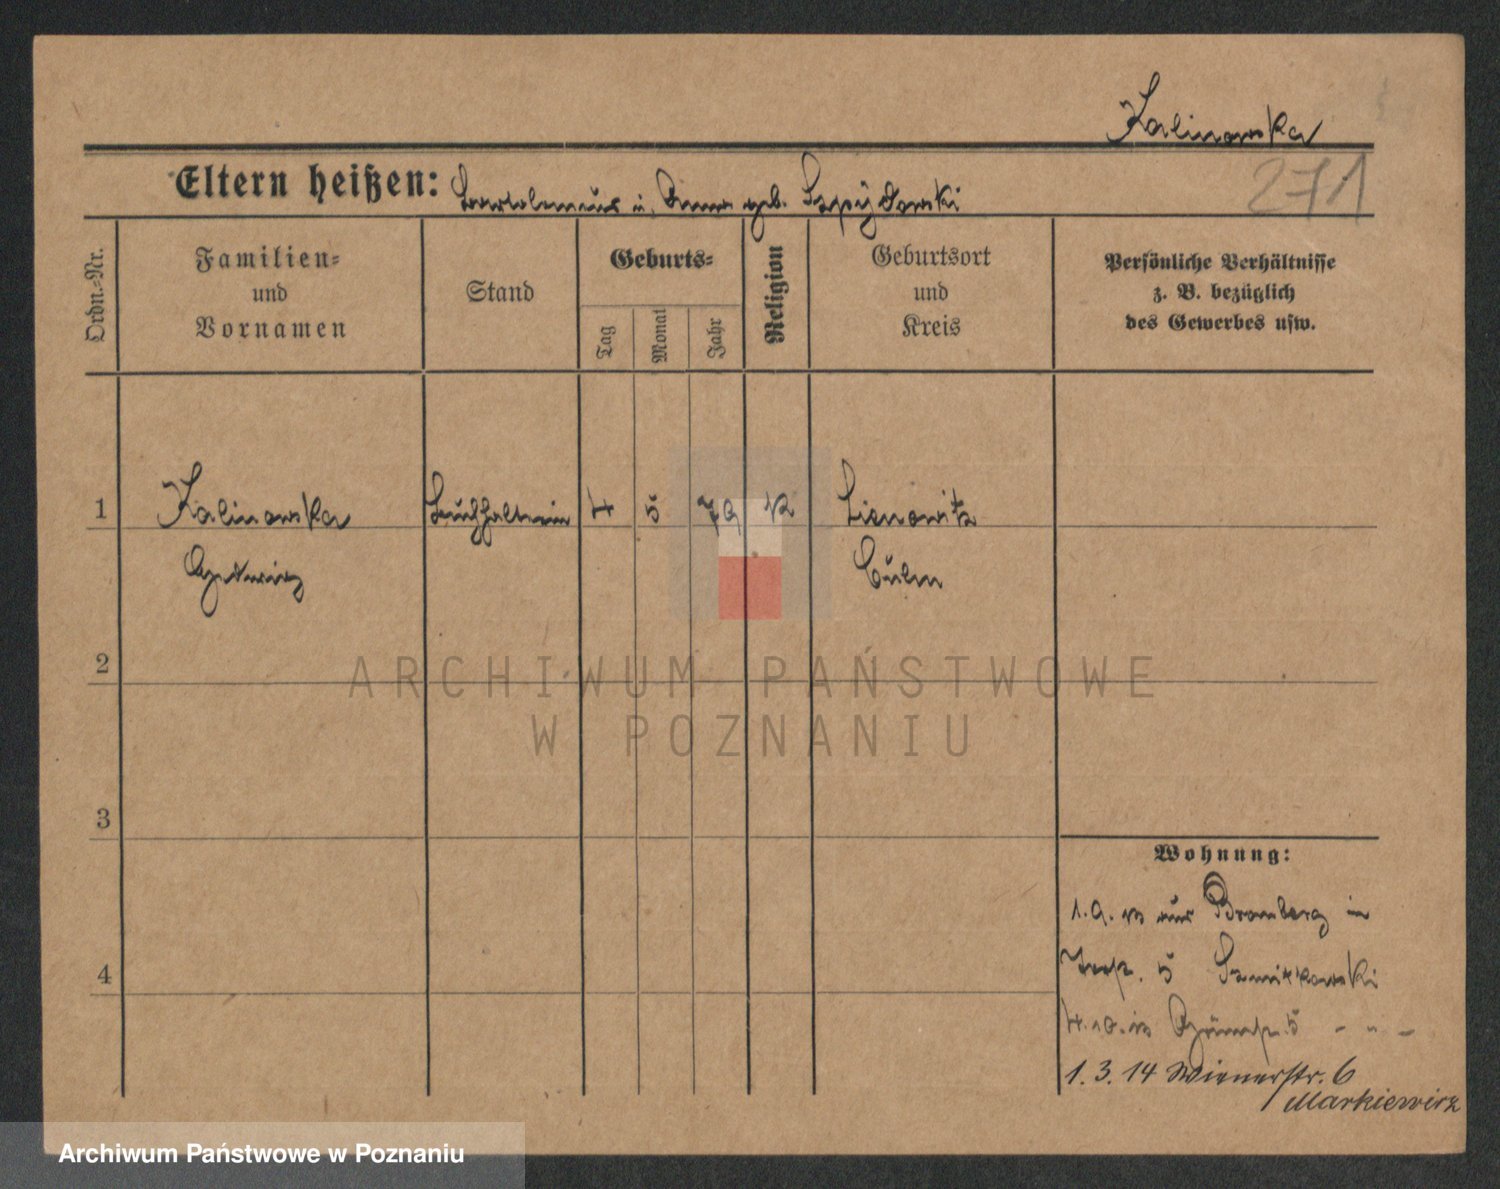 Kalinowska
271
Eltern heißen: Bartolomeus u. Anna geb. Szpijdowski
Ordn.-Nr.
Familien-
und
Vornamen
Stand
Geburts-
Tag
Monat
Jahr
Religion
Geburtsort
und
Kreis
Persönliche Verhältnisse
z. B. bezüglich
des Gewerbes usw.
1 Kalinowska Buchhalterin 4 5 79 k Lienowitz
Hedwig Culm
2
3
4
Wohnung:
1.9. 13 aus Bromberg in
5 Szmitkowski
4.10.13 5 - " -
1.3.14 Wienerstr. 6
Markiewicz
ARCHIWUM PAŃSTWOWE
W POZNANIU
Archiwum Państwowe w Poznaniu